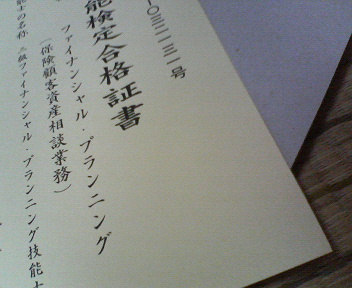 〇三二一三一号
能検定合格証書
ファイナンシャル・プランニング
（保険顧客資産相談業務）
士の名称 二級ファイナンシャル・プランニング技能士